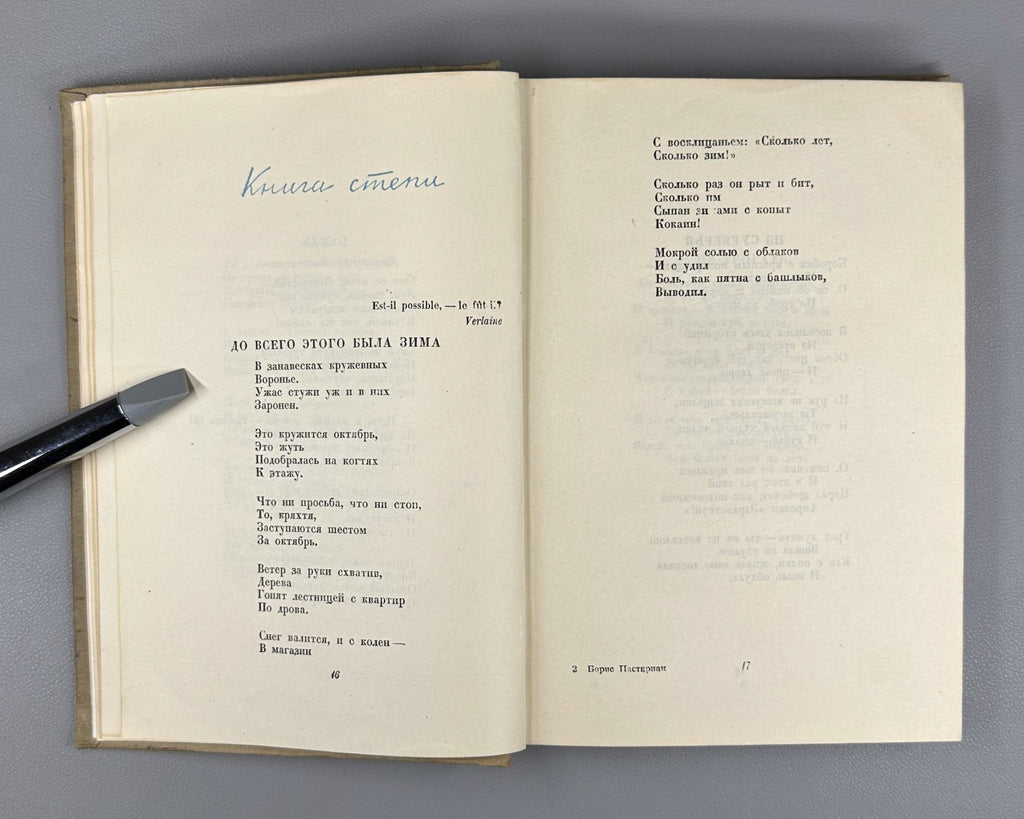 Книга степи
Est-il possible, — le fût-il?
Verlaine
ДО ВСЕГО ЭТОГО БЫЛА ЗИМА
В занавесках кружевных
Воронье.
Ужас стужи уж и в них
Заронен.
Это кружится октябрь,
Это жуть
Подобралась на когтях
К этажу.
Что ни просьба, что ни стон,
То, кряхтя,
Заступаются шестом
За октябрь.
Ветер за руки схватив,
Дерева
Гонят лестницей с квартир
По дрова.
Снег валится, и с колен —
В магазин
16
С восклицаньем: «Сколько лет,
Сколько зим!»
Сколько раз он рыт и бит,
Сколько им
Сыпан зимами с копыт
Кокаин!
Мокрой солью с облаков
И с удил
Боль, как пятна с башлыков,
Выводил.
2 Борис Пастернак
17